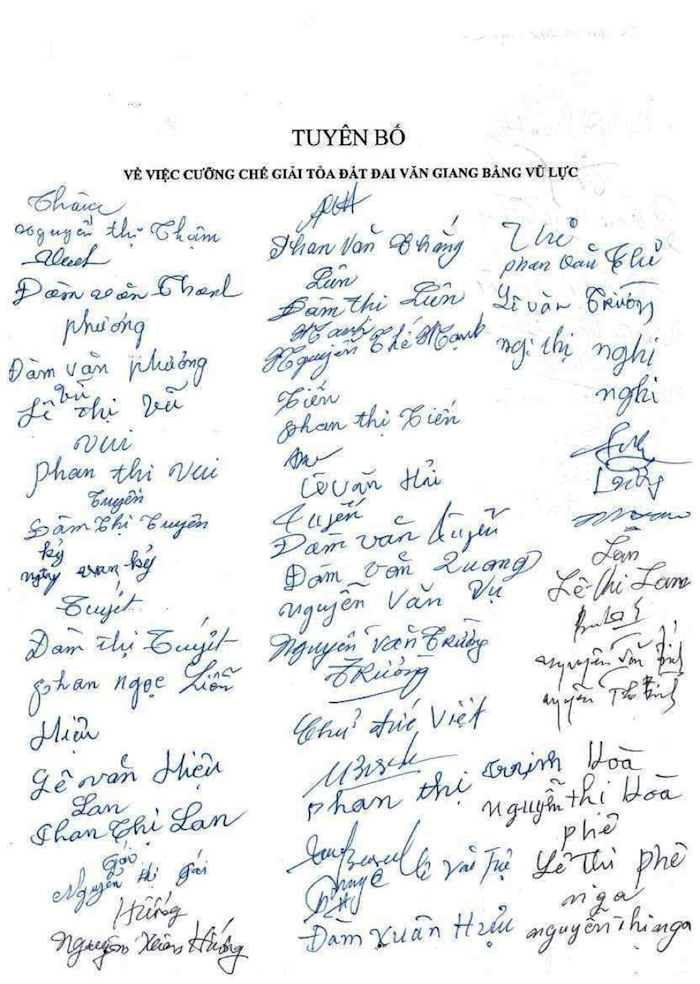 TUYÊN BỐ
VỀ VIỆC CƯỠNG CHẾ GIẢI TỎA ĐẤT ĐAI VĂN GIANG BẰNG VŨ LỰC
Nguyễn thị Thậm
Đàm văn Thanh
phương
Đàm văn phương
Lê thị Vũ
vui
phan thi vui
Tuyền
Đàm Thị Tuyền
kỷ
văn kỷ
Tuyết
Đàm thị Tuyết
phan ngọc Liễn
Hiệu
Lê văn Hiệu
Lan
Phan Thi Lan
gái
Nguyễn thị gái
Hướng
Nguyễn Xuân Hướng
Phan Văn Thắng
Liên
Đàm thi Liên
Mạnh
Nguyễn Thế Mạnh
Tiến
phan thị Tiến
Lê văn Hải
Đàm văn
Đàm văn Quang
nguyễn Văn Vụ
Nguyễn văn Trường
Trường
Chử đức Việt
phan thị
Đàm Xuân Hựu
Thử
phan văn Thử
Lê văn Trường
thị nghi
nghi
Lan
Lê thi Lan
nguyễn văn
nguyễn
trịnh Hoà
nguyễn thi Hoà
phê
Lê thi phê
nga
nguyễn thị nga